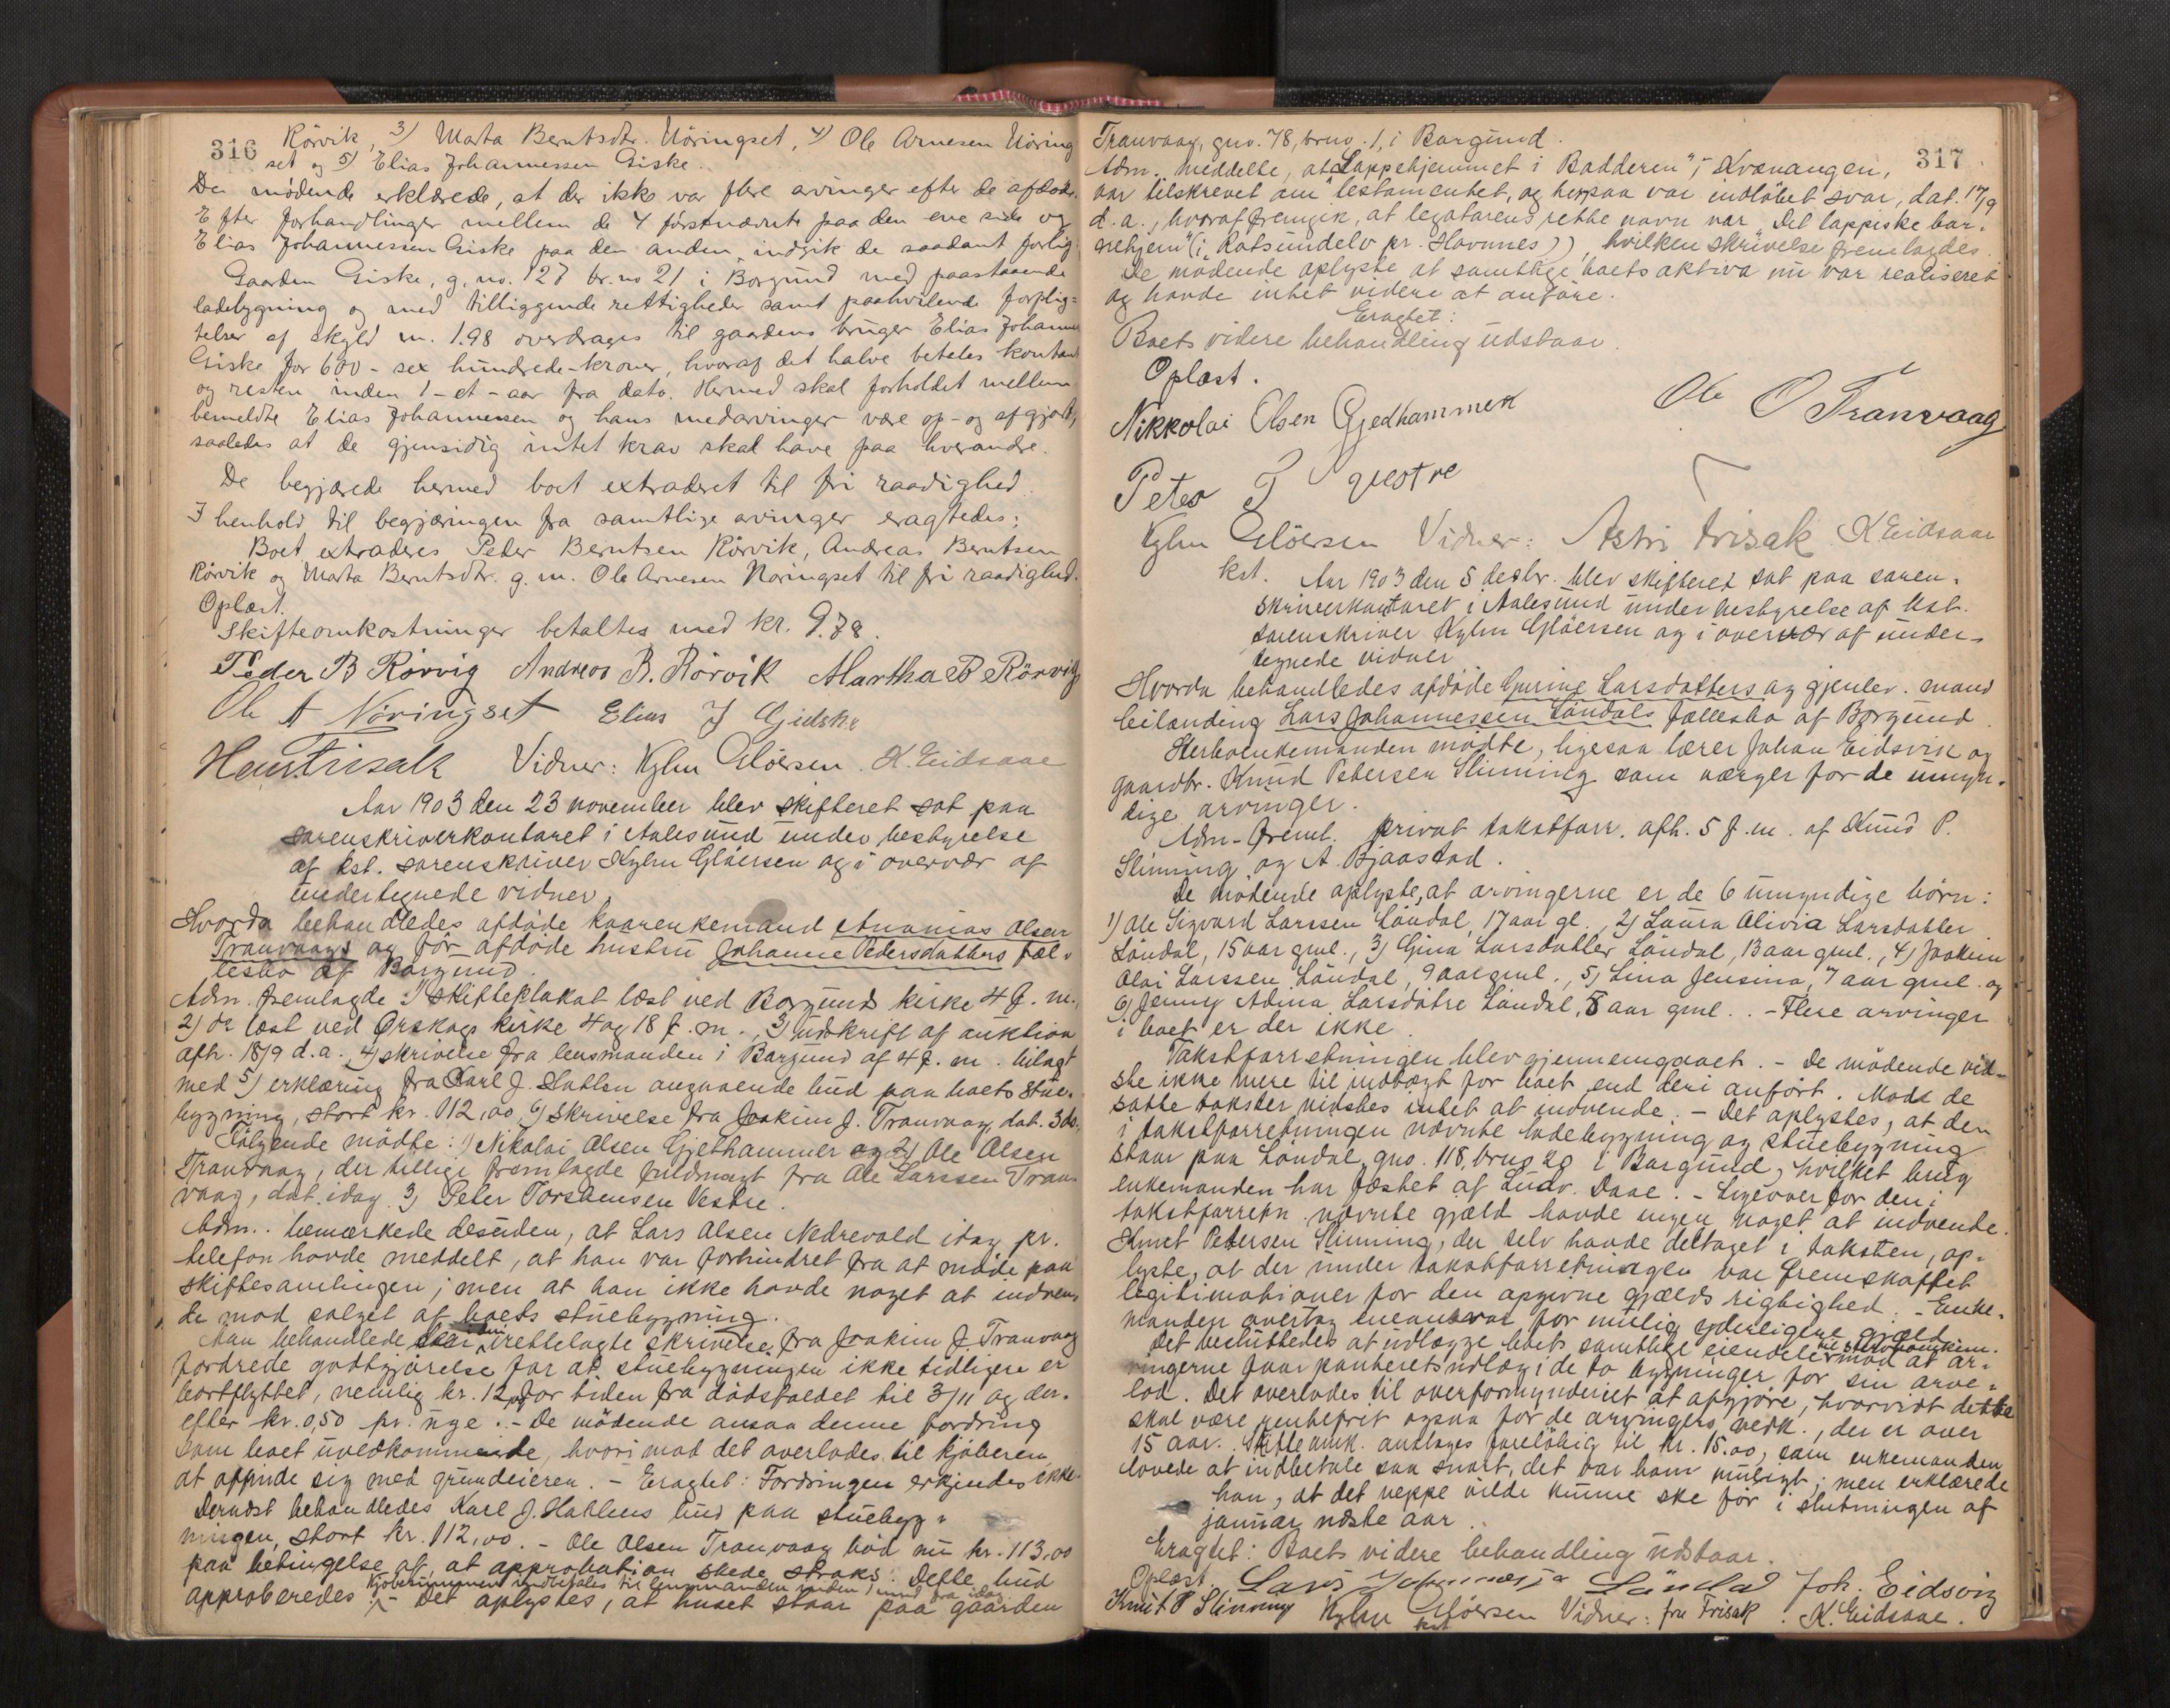 316
Rörvik, 3) Marta Berntsdtr. Nöringset, 4) Ole Arnesen Nöring
set og 5) Elias Johannessen Giske.
De mødende erklærede, at der ikke var flere arvinger efter de afdøde.
Efter forhandlinger mellem de 4 förstnævnte paa den ene side og
Elias Johannessen Giske paa den anden, indgik de saadant forlig:
Gaarden Giske, g. no. 127 br. no 21 i Borgund med paastaaende
ladebygning og med tilliggende rettigheder samt paahvilende forplig-
telser af skyld m. 1.98 overdrages til gaardens bruger Elias Johannes
Giske for 600 - sex hundrede - kroner, hvoraf det halve betales kontant
og resten inden 1 - et - aar fra dato. Hermed skal forholdet mellem
bemeldte Elias Johannessen og hans medarvinger være op- og afgjort,
saaledes at de gjensidig intet krav skal have paa hverandre.
De begjærede hermed boet extraderet til fri raadighed.
I henhold til begjæringen fra samtlige arvinger eragtedes:
Boet extraderes Peder Berntsen Rörvik, Andreas Berntsen
Rörvik og Marta Berntsdtr. g. m. Ole Arnesen Nöringset til fri raadighed.
Oplæst.
Skifteomkostninger betaltes med kr. 9.78.
Peder B Rörvig Andreas B. Rörvik Martha B Rörvig
Ole A Nöringset Elias J Gjidske
Hans Frisak Vidner: Kylm Glöersen. K. Eidsaae
Aar 1903 den 23 november blev skifteret sat paa
sorenskriverkontoret i Aalesund under bestyrelse
af kst. sorenskriver Kylm Glöersen og i overvær af
undertegnede vidner
Hvorda behandledes afdöde kaarenkemand Ananias Olsen
Tranvaags og för afdöde hustru Johanne Pedersdatters fæl-
lesbo af Borgund.
Adm. fremlagde 1) skifteplakat læst ved Borgund kirke 4 f. m.,
2) do læst ved Ørskogs kirke 4 og 18 f. m., 3) udskrift af auktion
afh. 18/9 d.a., 4) skrivelse fra lensmanden i Borgund af 4 f. m. bilagt
med 5) erklæring fra Karl J. Hatlen angaaende bud paa boets stue-
bygning, stort kr. 112,00, 6) skrivelse fra Joakim J. Tranvaag, dat. 3 ds.
Fölgende mödte: 1) Nikolai Olsen Gjethammer og 2) Ole Olsen
Tranvaag, der tillige fremlagde fuldmagt fra Ole Larssen Tran-
vaag, dat. idag. 3) Peter Torstensen Vestre.
Adm. bemærkede desuden, at Lars Olsen Nedrevold idag pr.
telefon havde meddelt, at han var forhindret fra at möde paa
skiftesamlingen; men at han ikke havde noget at indven-
de mod salget af boets stuebygning.
Man behandlede den i rettelagte skrivelse fra Joakim J. Tranvaag
fordrede godtgjörelse for at stuebygningen ikke tidligere er
bortflyttet, nemlig kr. 12,00 for tiden fra dödsfaldet til 3/11 og der-
efter kr. 0,50 pr. uge. - De mödende ansaa denne fordring
som boet uvedkommende, hvorimod det overlodes til kjöberen
at affinde sig med grundeieren. - Eragtet: Fordringen erkjendes ikke.
Dernæst behandledes Karl J. Hatlens bud paa stuebyg-
ningen, stort kr. 112,00. - Ole Olsen Tranvaag böd nu kr. 113,00
paa betingelse af, at approbation skede straks. Dette bud
kjöbesummen indbetales til lensmanden inden 1 mnd fra idag
approberedes. - Det oplystes, at huset staar paa gaarden
317
Tranvaag, gno. 78, brno. 1, i Borgund.
Adm. meddelte, at "Lappehjemmet i Badderen", Kvænangen,
var tilskrevet om testamentet, og herpaa var indlöbet svar, dat. 17/9
d. a., hvoraf fremgik, at legatarens rette navn var "Det lappiske bar-
nehjem" (i Rotsundelv pr. Havnnes), hvilken skrivelse fremlagdes.
De mödende oplyste at samtlige boets aktiva nu var realiseret
og havde intet videre at anföre.
Eragtet:
Boets videre behandling udstaar.
Oplæst.
Nikkolai Olsen Gjedhammer Ole O Tranvaag
Peter T Vestre
Kylm Glöersen Vidner: Astri Frisak K. Eidsaae
kst.
Aar 1903 den 5 decbr. blev skifteret sat paa soren-
skriverkontoret i Aalesund under bestyrelse af kst.
sorenskriver Kylm Glöersen og i overvær af under-
tegnede vidner
Hvorda behandledes afdöde Gurine Larsdatters og gjenlev. mand
leilænding Lars Johannessen Löndals fællesbo af Borgund.
Sterboenkemanden mödte, ligesaa lærer Johan Eidsvik og
gaardbr. Knud Petersen Slinning som værger for de umyn-
dige arvinger.
Adm. freml. privat takstforr. afh. 5 f. m. af Knud P.
Slinning og A. Bjaastad.
De mödende oplyste, at arvingerne er de 6 umyndige börn:
1) Ole Sigvard Larssen Löndal, 17 aar gl., 2) Laura Olivia Larsdatter
Löndal, 15 aar gml., 3) Gina Larsdatter Löndal, 13 aar gml., 4) Joakim
Olai Larssen Löndal, 9 aar gml., 5) Lina Jensine, 7 aar gml. og
6) Jenny Adina Larsdatre Löndal, 5 aar gml. . - Flere arvinger
i boet er der ikke.
Takstforretningen blev gjennemgaaet. - De mödende vid-
ste ikke mere til indtægt for boet, end deri anfört. Mod de
satte takster vidstes intet at indvende. - Det oplystes, at den
i takstforretningen nævnte ladebygning og stuebygning
staar paa Löndal, gno. 118, brno 20 i Borgund, hvilket brug
enkemanden har fæstet af Ludv. Daae. - Ligeover for den i
takstforretn. nævnte gjæld havde ingen noget at indvende.
Knut Petersen Slinning, der selv havde deltaget i taksten, op-
lyste, at der under takstforretningen var fremskaffet
legitimationer for den opgivne gjælds rigtighed. - Enke-
manden overtog eneansvar for mulig yderligere gjæld.
Det besluttedes at udlægge boets samtlige eiendele til sterboenkem. mod at ar-
vingerne faar panteretsudlæg i de to bygninger for sin arve-
lod. Det overlodes til overformynderiet at afgjöre, hvorvidt dette
skal være rentefrit ogsaa for de arvingers vedk., der er over
15 aar. Skifteomk. antages foreløbig til kr. 15.00, som enkemanden
lovede at indbetale saa snart, det var ham muligt; men erklærede
han, at det neppe vilde kunne ske för i slutningen af
januar næste aar.
Eragtet: Boets videre behandling udstaar.
Oplæst. Lars Johannesen Löndal Joh. Eidsvig
Knut P Slinning Kylm Glöersen Vidner: fru Frisak. K. Eidsaae.
kst